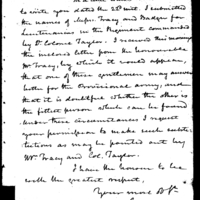 to write you dated the 28th ult. I submitted
the names of Messrs. Tracy and Badger for
Lieutenancies in the Regiment commanded
by Colonel Taylor. I received this morning
the inclosed letter from the honourable
Mr. Tracy, by which it would appear,
that one of these gentlemen may answer
better for the Provisional army, and
that it is doubtful whether the other is
the fittest person which can be found
Under these circumstances I request
your permission to make such substi-
tutions as may be pointed out by
Mr. Tracy and Col. Taylor.
I have the honour to be
with the greatest respect,
Your most Obt